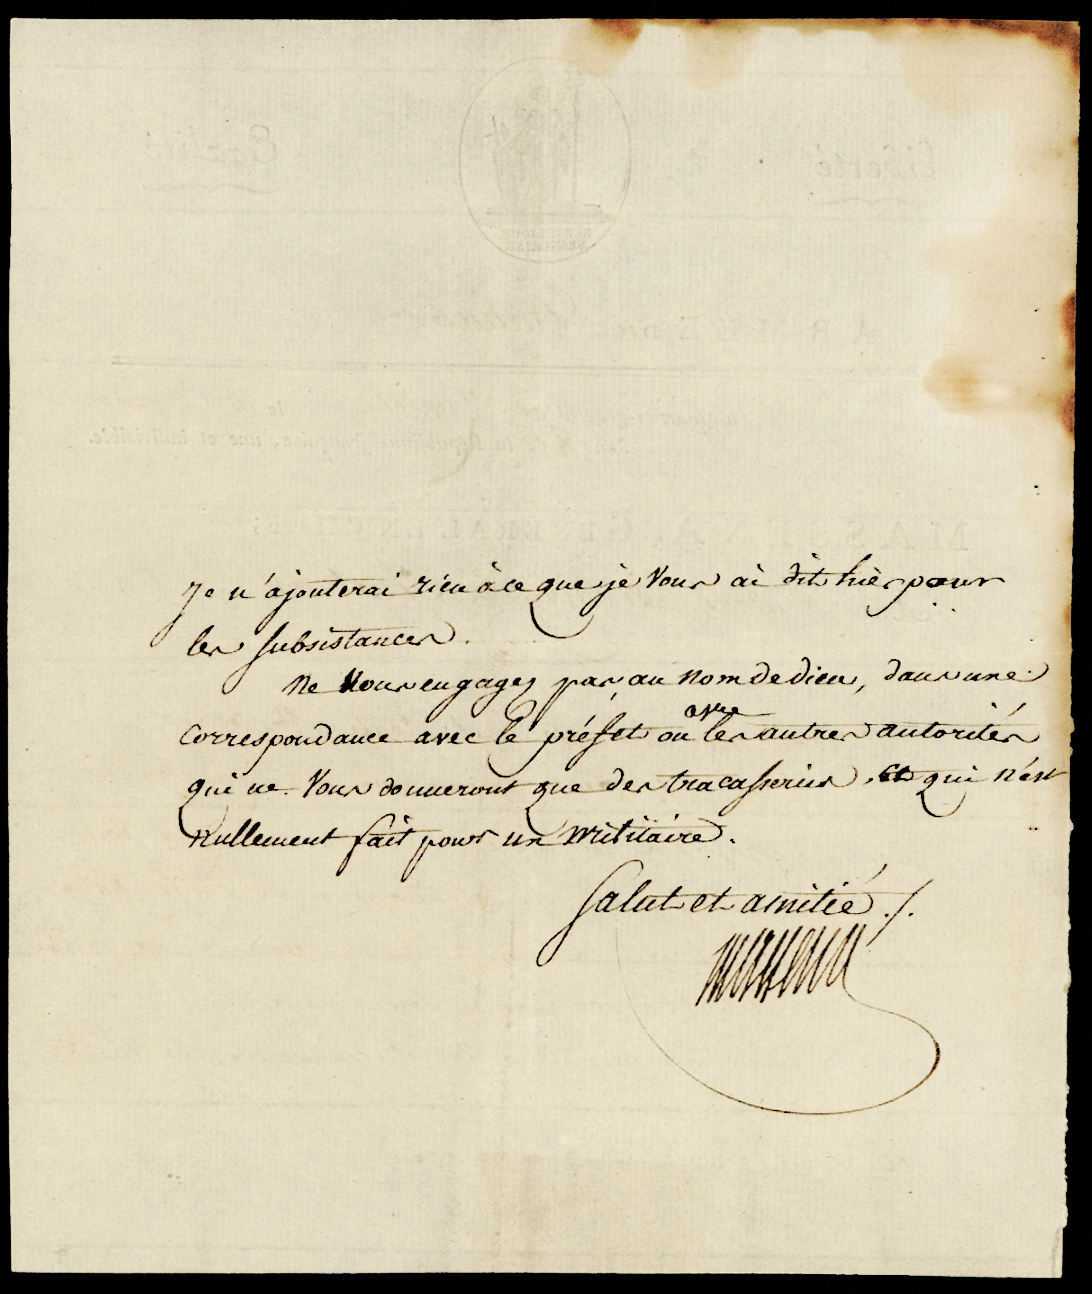 Je n'ajouterai rien à ce que je Vous ai dit hier pour
les subsistances.
Ne Vous engagez pas, au nom de dieu, dans une
correspondance avec le préfet ou avec les autres autorités
qui ne Vous donneront que des tracasseries, et qui n'est
nullement fait pour un militaire.
Salut et amitié ./.
Massena